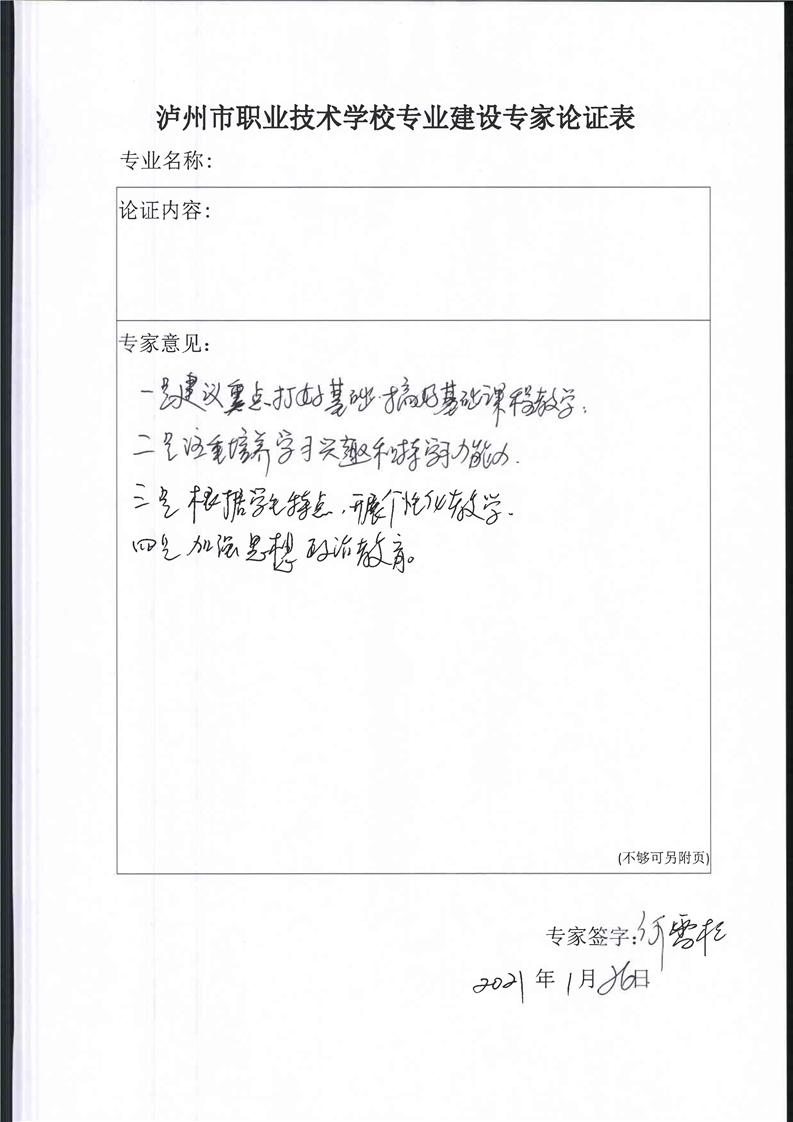 泸州市职业技术学校专业建设专家论证表
专业名称：
论证内容：
专家意见：
一是建议重点打好基础，搞好基础课程教学；
二是注重培养学习兴趣和持学习力能力．
三是根据学生特点，开展个性化教学．
四是加强思想政治教育。
(不够可另附页)
专家签字：何雪松
2021年1月26日